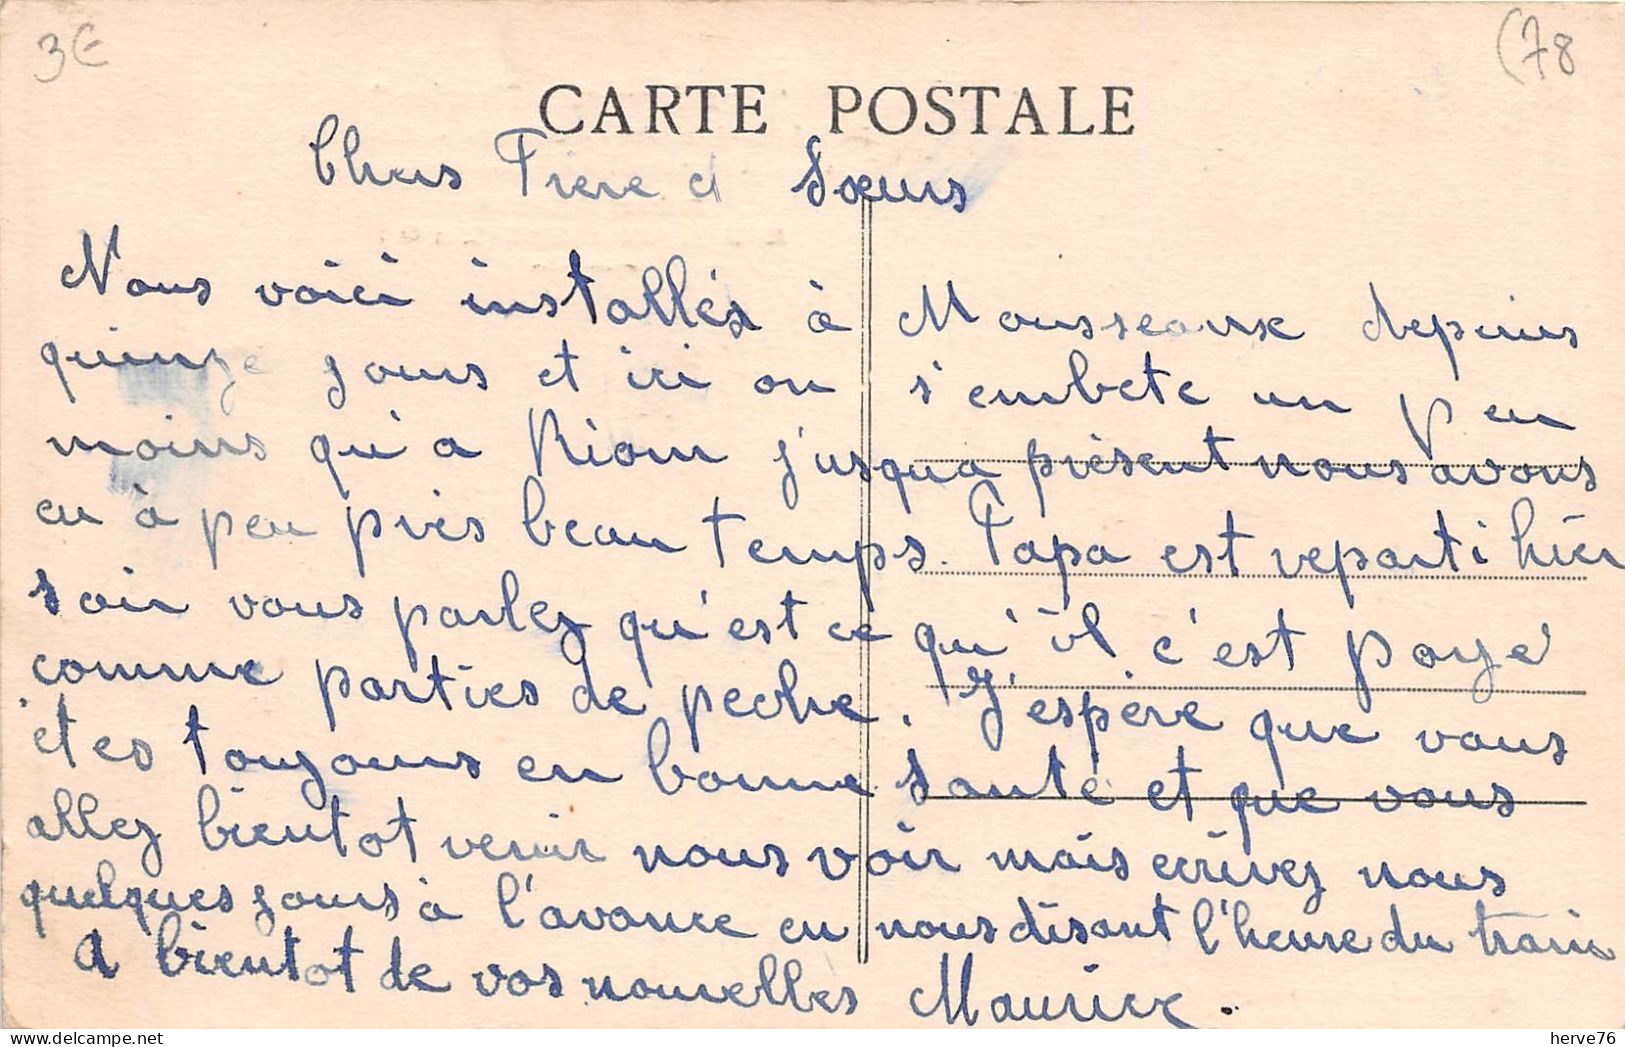 3€
(78
CARTE POSTALE
Chers Frère et Sœurs
Nous voici installés à Mousseaux depuis
quinze jours et ici on s'embete un peu
moins qu'a Riom jusqua présent nous avons
eu à peu près beau temps. Papa est reparti hier
soir vous parlez qu'est ce qu'il c'est payé
comme parties de peche. J'espère que vous
êtes toujours en bonne santé et que vous
allez bientot venir nous voir mais ecrivez nous
quelques jours à l'avance en nous disant l'heure du train
A bientot de vos nouvelles Maurice.
herve76